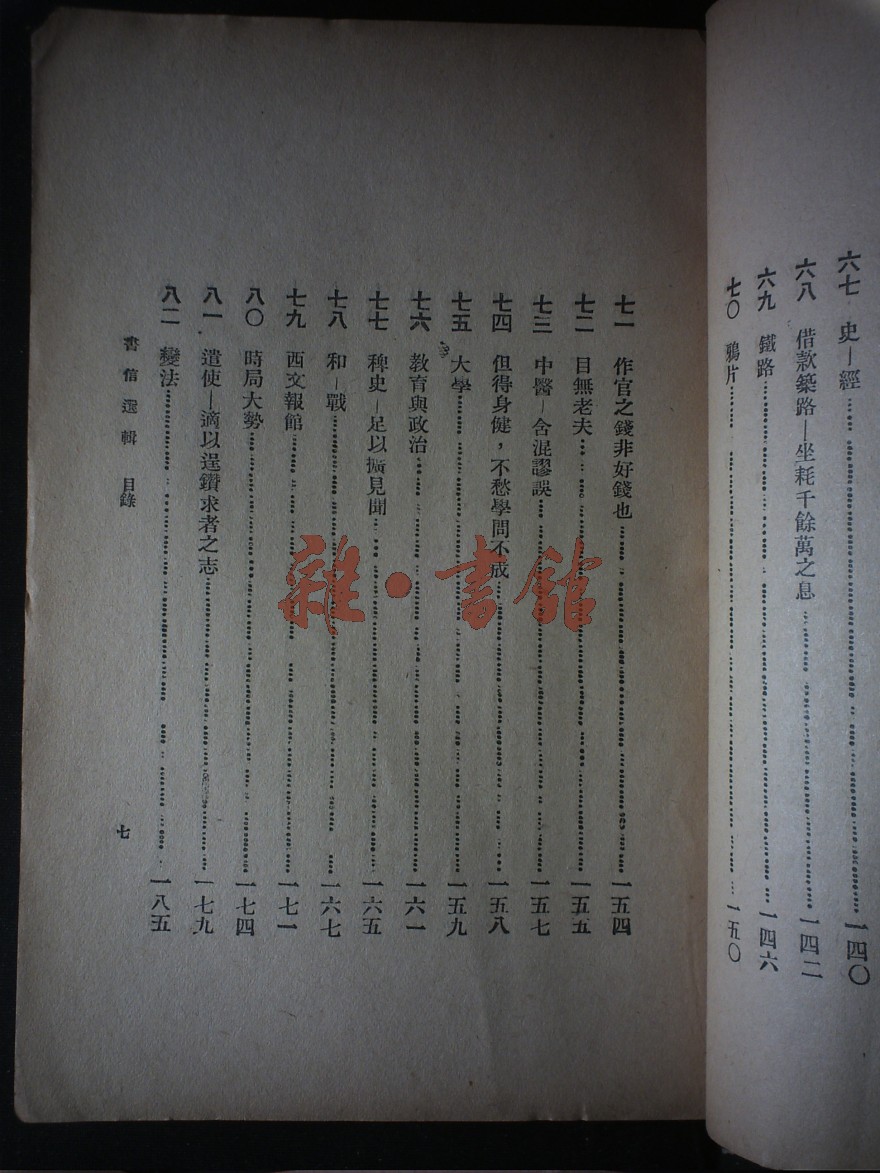 六七 史—經 一四〇
六八 借款築路—坐耗千餘萬之息 一四二
六九 鐵路 一四六
七〇 鴉片 一五〇
七一 作官之錢非好錢也 一五四
七二 目無老夫 一五五
七三 中醫—含混謬誤 一五七
七四 但得身健，不愁學問不成 一五八
七五 大學 一五九
七六 教育與政治 一六一
七七 稗史—足以擴見聞 一六五
七八 和—戰 一六七
七九 西文報館 一七一
八〇 時局大勢 一七四
八一 遣使—適以逞鑽求者之志 一七九
八二 變法 一八五
書信選輯 目錄 七
雜·書館